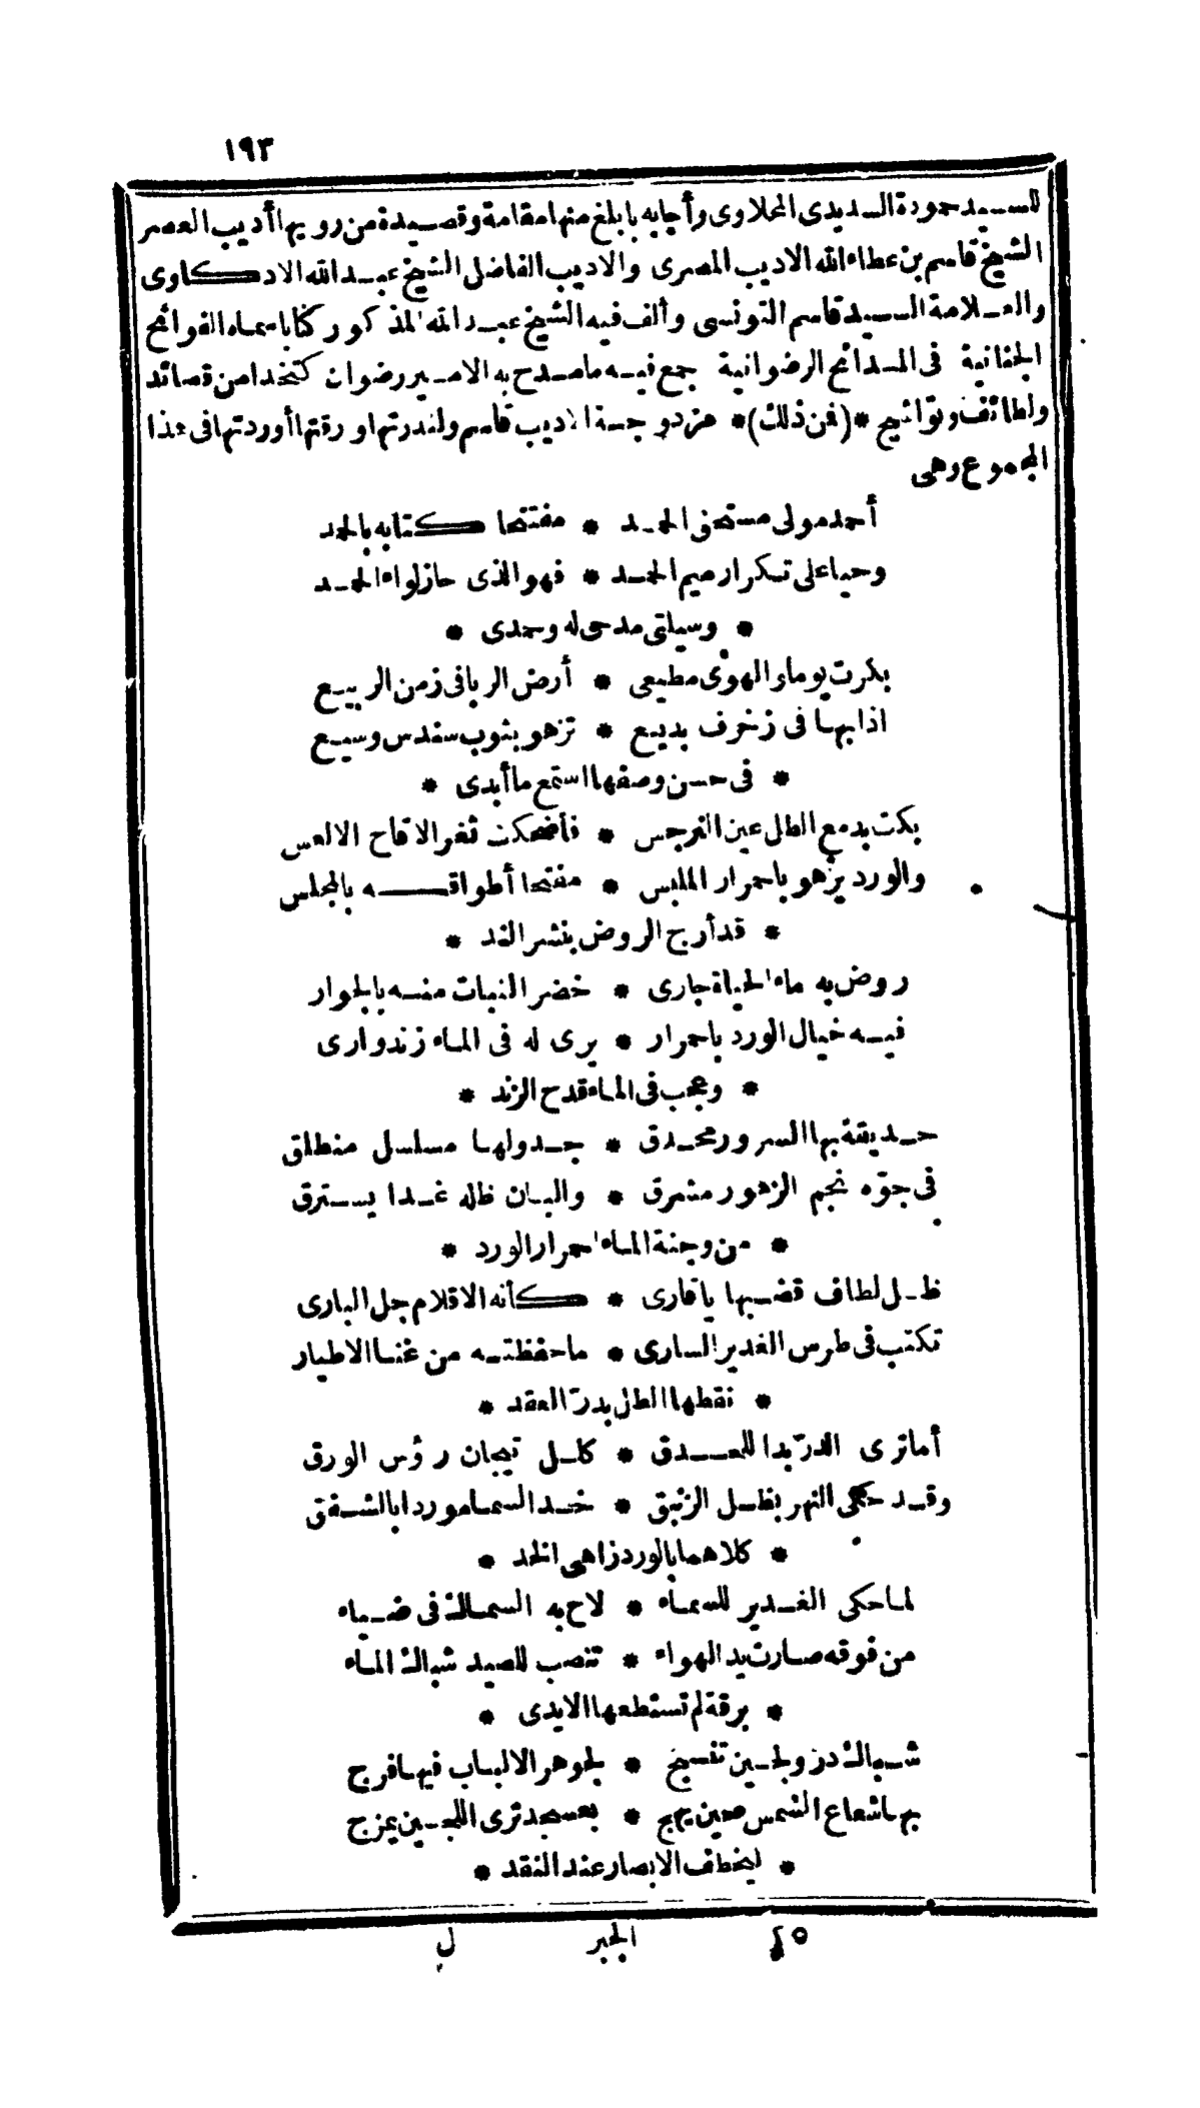 ١٩٣
للسيد حمودة السديدى المحلاوى وأجابه بابلغ منها مقامة وقصيدة من رويها أديب العصر
الشيخ قاسم بن عطاء الله الاديب المصرى والاديب الفاضل الشيخ عبد الله الادكاوى
والعلامة السيد قاسم التونسى وألف فيه الشيخ عبد الله المذكور كتابا سماه الفوائح
الجنانية فى المدائح الرضوانية جمع فيه ما مدح به الامير رضوان كتخدا من قصائد
ولطائف وتواشيح * (فمن ذلك) * مزدوجة الاديب قاسم ولندرتها ورقتها أوردتها فى هذا
المجموع وهى
أحمد مولى مستحق الحمد * مفتتحا كتابه بالحمد
وحبا على تكرار ميم الحمد * فهو الذى حاز لواء الحمد
* وسيلتى مدحى له وحمدى *
بكرت يوما والهوى مطيعى * أرض الربا فى زمن الربيع
اذا بها فى زخرف بديع * تزهو بثوب سندس وسيع
* فى حسن وصفها استمع ما أبدى *
بكت بدمع الطل عين النرجس * فأضحكت ثغر الاقاح الالعس
والورد يزهو باحمرار الملبس * مفتحا أطواقه بالمجلس
* قد أرج الروض بنشر الند *
روض به ماء الحياة جارى * خضر النبات منه بالجوار
فيه خيال الورد باحمرار * يرى له فى الماء زند وارى
* وعجب فى الماء قدح الزند *
حديقة بها السرور محدق * جدولها مسلسل منطلق
فى جوّه نجم الزهور مشرق * والبان ظله غدا يسترق
* من وجنة الماء احمرار الورد *
ظل لطاف قضبها يا قارى * كأنه الاقلام جل البارى
تكتب فى طرس الغدير السارى * ما حفظته من غنا الاطيار
* نقطها الطل بدرّ العقد *
أما ترى الدرّ بدا للحدق * كلل تيجان رؤس الورق
وقد حكى النهر بظل الزئبق * خد السما موردا بالشفق
* كلاهما بالورد زاهى الخد *
لما حكى الغدير للسماء * لاح به السماك فى ضياء
من فوقه صارت يد الهواء * تنصب للصيد شباك الماء
* برقة لم تستطعها الايدى *
شباك درّ ولجين تنسج * لجوهر الالباب فيها فرج
بها شعاع الشمس حين يهج * بعسجد ترى اللجين يمزج
* ليخطف الابصار عند النقد *
٢٥ الجبر ل